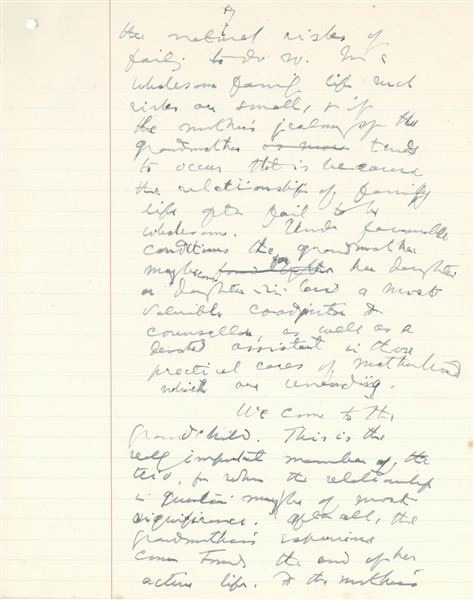 the natural risks of
failing to do so. In a
wholesome family life such
risks are small, & if
the mother's jealousy of the
grandmother tends
to occur that is because
the relationships of family
life often fail to be
wholesome. Under favourable
conditions the grandmother
may become for her daughter
or daughter-in-law a most
valuable coadjutor &
counsellor, as well as a
devoted assistant in those
practical cares of motherhood
which are unending.
We come to the
grandchild. This is the
really important member of the
trio, for whom the relationship
in question may be of most
significance. After all, the
grandmother's experience
comes towards the end of her
active life. To the mother's